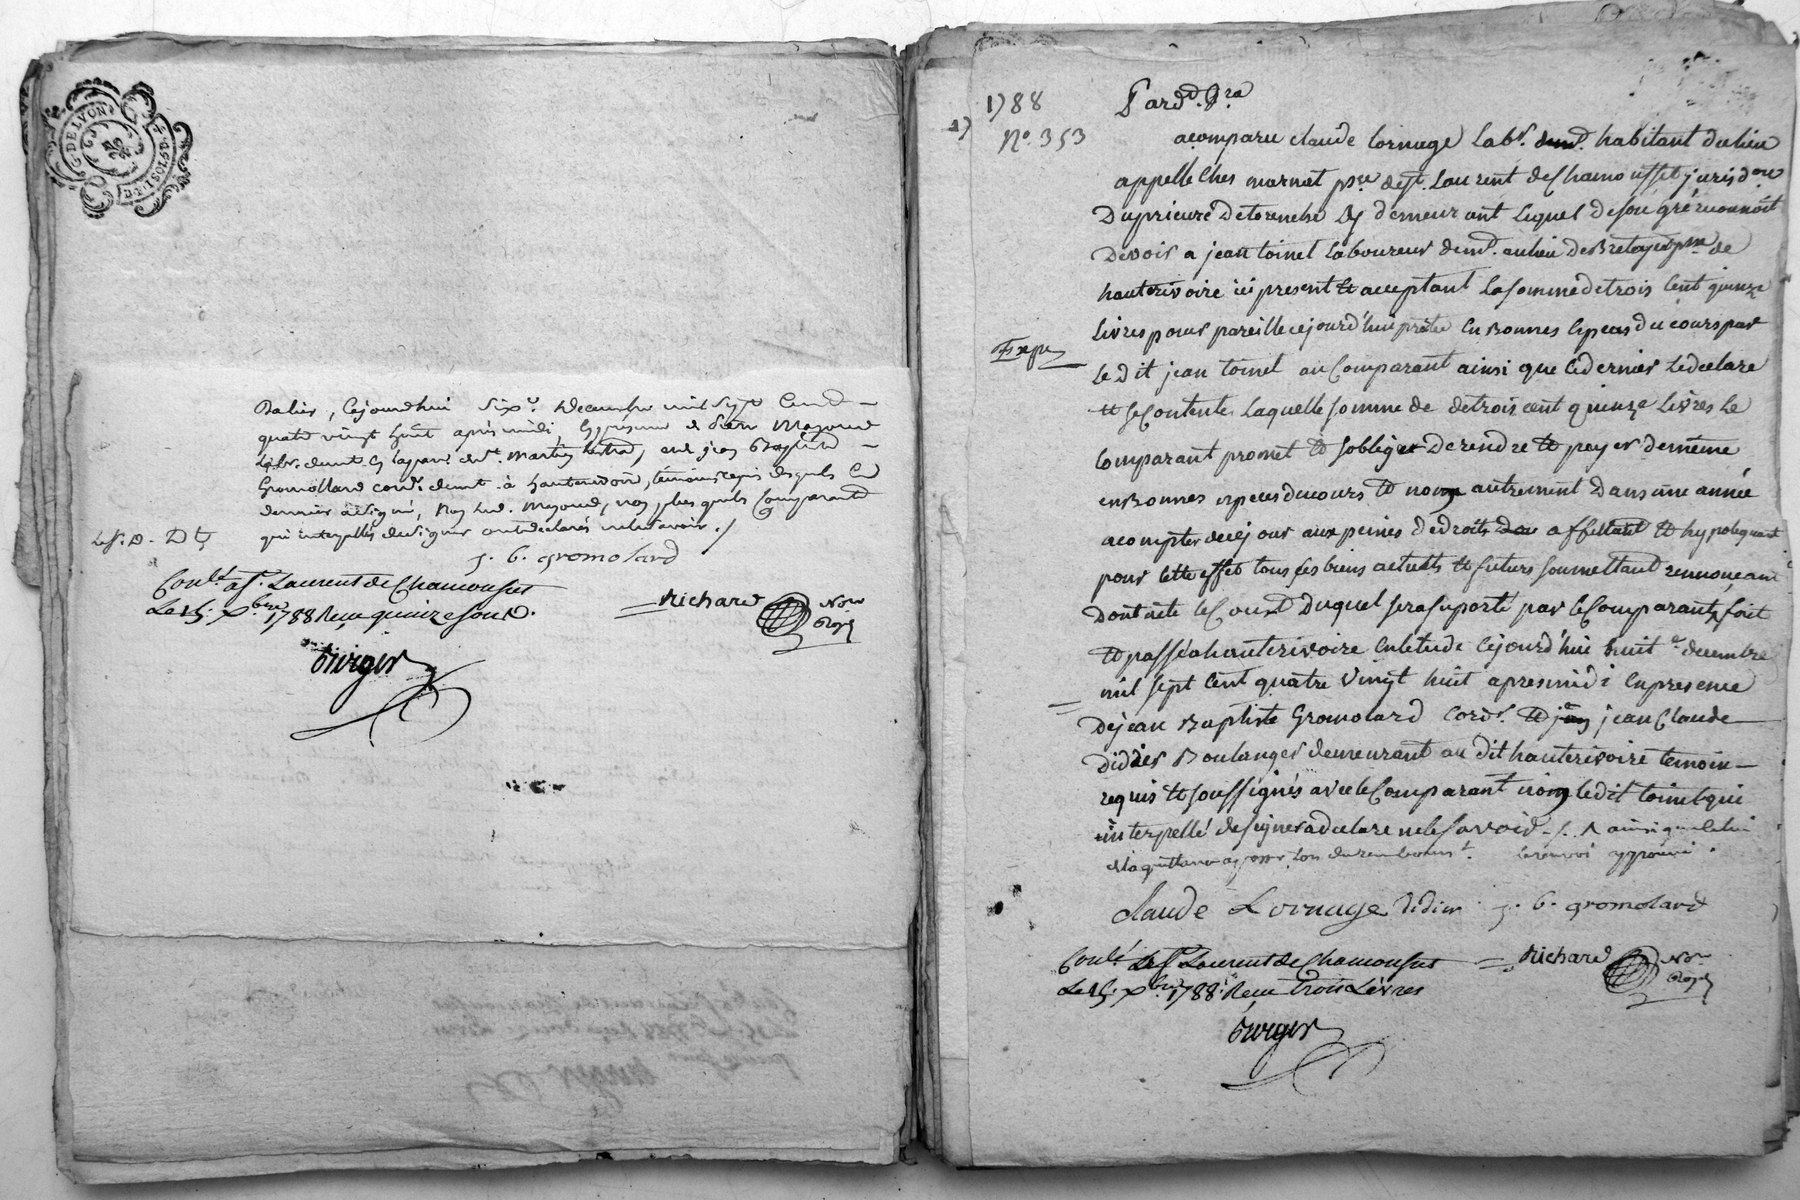 G. DE LYON
2. SOLS 4. DE
Dalier, Cejourdhui Six.e decembre mil Sept Cent
quatre vingt huit après midi, En presence de Pierre Mazoud
Labr. demt. martin, and jean Baptiste
Gromollard cordr. demt. à hauterivoire, témoins requis desquels Ce
dernier a signé, Non Led. Mazoud, non plus que les Comparants
qui interpellés de signer ont déclarés ne le savoir ./
j. b. gromolard
Conlé. a St. Laurent de Chamousset
Le 15. Xbre 1788 Reçu quinze sous D.
Richard Nore Royl
Burger
1788
No. 353
Pard.t
a comparu claude Lornage Labr. demt. habitant du lieu
appellé Ches marnat psse de St. Laurent de Chamousset jurisdon
Du prieuré De torenche Dy demeurant Lequel de son gré reconnoit
Devoir a jean toinet Laboureur demt. au lieu de Bretagne psse de
hauterivoire ici present et acceptant La somme de trois Cent quinze
Livres pour pareille cejourd'hui prêtée En Bonnes Especes du cours par
Le Dit jean toinet au Comparant ainsi que Ce dernier Le declare
et se Contente Laquelle somme de de trois cent quinze Livres Le
Comparant promet et soblige De rendre et payer de même
en Bonnes especes du cours et non autrement Dans une année
a compter de ce jour aux peines de droits affectant et hypotequant
pour Cette effet tous ses biens actuels et futurs soumettant renonceant
Dont acte Le Cout Duquel sera suporté par le Comparant, fait
et passé a hauterivoire En letude Cejourd'hui huit e decembre
mil sept Cent quatre vingt huit apres midi En presence
De jean Baptiste Gromolard Cordr. et jean jean Claude
Didier Boulanger demeurant au dit hauterivoire temoin
requis et soussignés avec le Comparant non ledit toinet qui
interpellé de signer a declaré ne le savoir ainsi que celui
de la quittance a passer Lors du rembourst. Le renvoi approuvé.
Claude Lornage Didier j. b. gromolard
Conlé. a St. Laurent de Chamousset
Le 15. Xbre 1788. Reçu Trois Livres
Richard Nore Royl
Burger